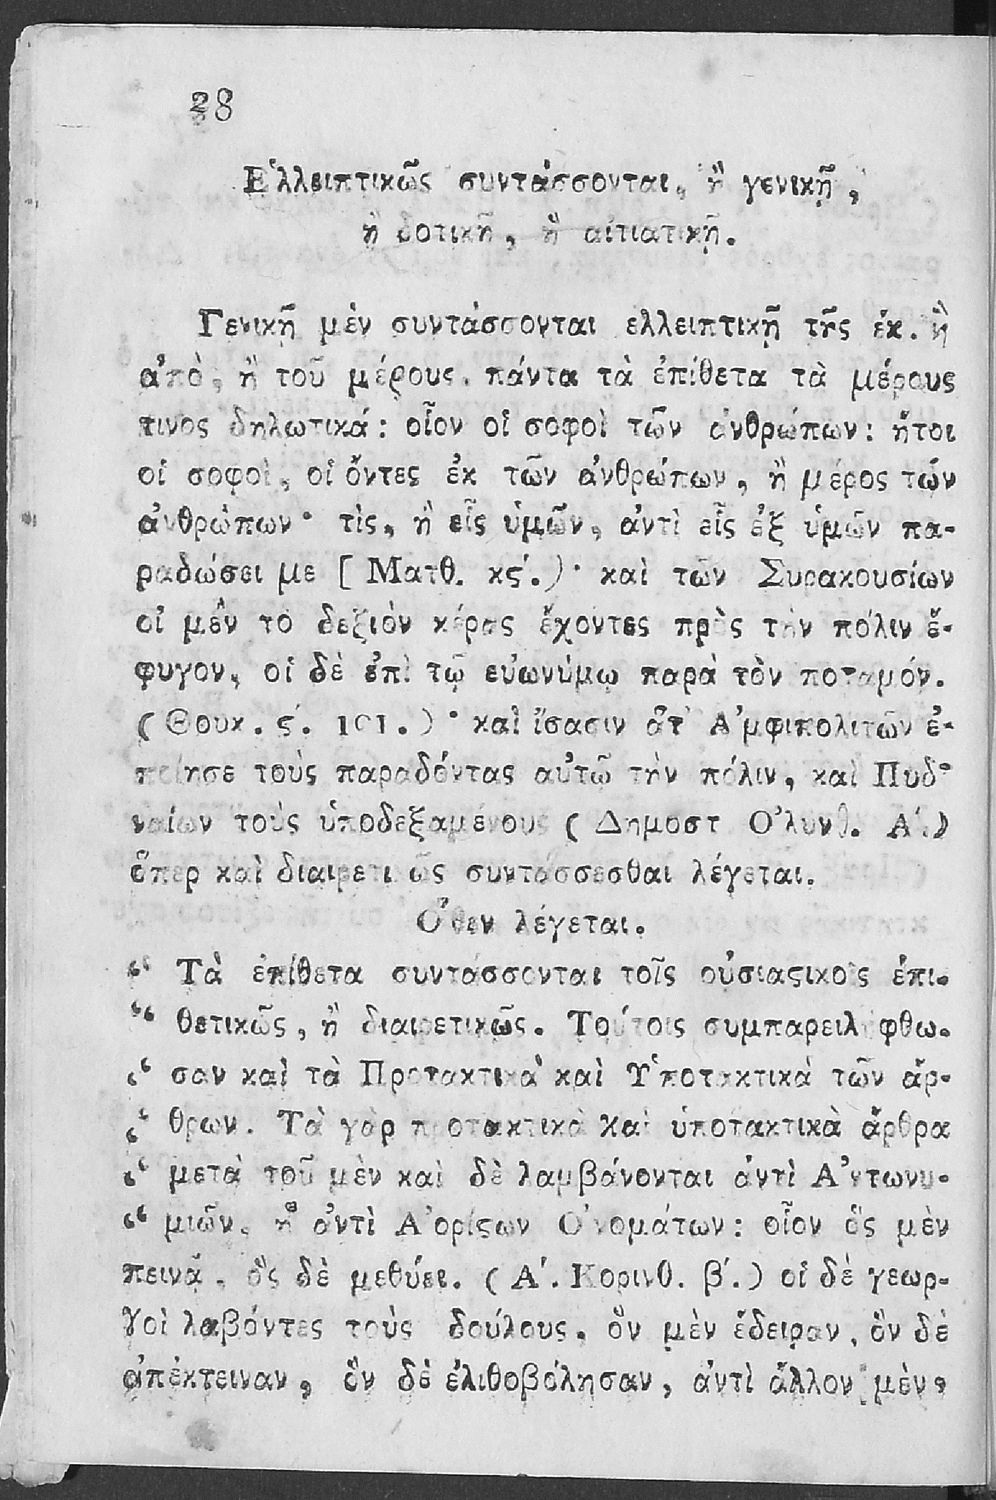 28
Ἐλλειπτικῶς συντάσσονται, ἢ γενικῇ,
ἢ δοτικῇ, ἢ αἰτιατικῇ.
Γενικῇ μὲν συντάσσονται ελλειπτικῇ τῆς ἐκ. ἢ
ἀπὸ, ἢ τοῦ μέρους. πάντα τὰ ἐπίθετα τὰ μέρους
τινος δηλωτικά: οἷον οἱ σοφοὶ τῶν ἀνθρώπων: ἤτοι
οἱ σοφοὶ, οἱ ὄντες ἐκ τῶν ἀνθρώπων, ἢ μέρος τῶν
ἀνθρώπων· τὶς, ἢ εἷς ὑμῶν, ἀντὶ εἷς ἐξ ὑμῶν πα-
ραδώσει με [Ματθ. κϛ΄.)· καὶ τῶν Συρακουσίων
οἱ μὲν τὸ δεξιὸν κέρας ἔχοντες πρὸς τὴν πόλιν ἔ-
φυγον, οἱ δὲ ἐπὶ τῷ εὐωνύμῳ παρὰ τὸν ποταμόν.
(Θουκ. ϛ΄. 101.)· καὶ ἴσασιν ἅτ' Ἀμφιπολιτῶν ἐ-
ποίησε τοὺς παραδόντας αυτῷ τὴν πόλιν, καὶ Πυδ-
ναίων τοὺς ὑποδεξαμένους (Δημοστ Ὀλυνθ. Α΄.)
ὅπερ καὶ διαιρετικῶς συντάσσεσθαι λέγεται.
Ὅθεν λέγεται.
“ Τὰ ἐπίθετα συντάσσονται τοῖς οὐσιαϛικοῖς ἐπι-
“ θετικῶς, ἢ διαιρετικῶς. Τούτοις συμπαρειλήφθω-
“ σαν καὶ τὰ Προτακτικὰ καὶ Ὑποτακτικὰ τῶν ἄρ-
“ θρων. Τὰ γὰρ προτακτικὰ καὶ ὑποτακτικὰ ἄρθρα
“ μετὰ τοῦ μὲν καὶ δὲ λαμβάνονται ἀντὶ Ἀντωνυ-
“ μιῶν, ἢ ἀντὶ Ἀορίϛων Ὀνομάτων: οἷον ὃς μὲν
πεινᾷ, ὃς δὲ μεθύει. (Α΄. Κορινθ. β΄.) οἱ δὲ γεωρ-
γοὶ λαβόντες τοὺς δούλους, ὃν μὲν ἔδειραν, ὃν δὲ
ἀπέκτειναν, ὃν δὲ ἐλιθοβόλησαν, ἀντὶ ἄλλον μὲν,